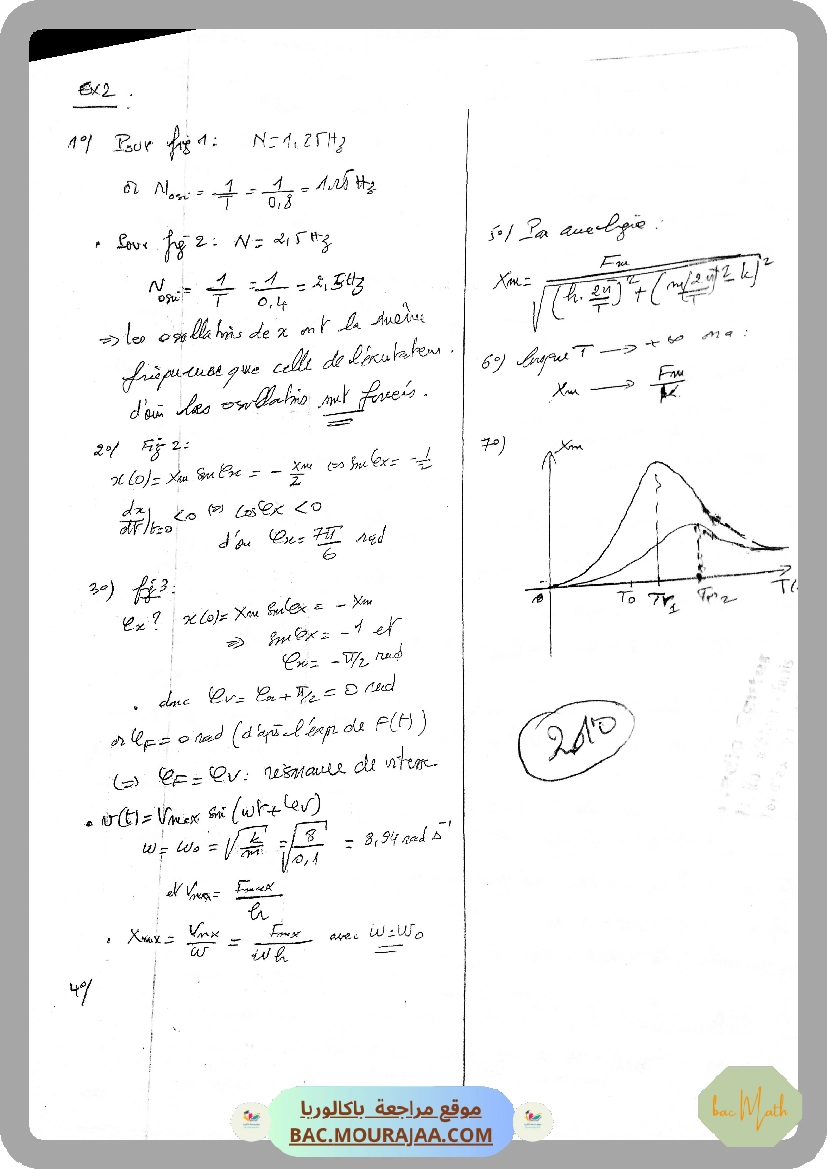 Ex2.
1°/ Pour fig 1: N=1,25Hz
or N = 1/T = 1/0,8 = 1,25 Hz
• Pour fig 2: N = 2,5 Hz
N = 1/T = 1/0,4 = 2,5Hz
=> les oscillations de x ont la même
fréquence que celle de l'excitateur.
d'où les oscillations sont forcées.
2°/ Fig 2:
x(0) = Xm sin φx = - Xm/2 <=> sin φx = -1/2
dx/dt|t=0 <0 <=> cos φx <0
d'où φx = 7π/6 rad
3°) fig 3:
φx? x(0) = Xm sin φx = - Xm
=> sin φx = -1 et
φx = -π/2 rad
• donc φv = φx + π/2 = 0 rad
or φF = 0 rad (d'après l'exp de F(t))
(=> φF = φv: résonance de vitesse.
• v(t) = Vmax sin(wt+φv)
w = w0 = √(k/m) = √(8/0,1) = 8,94 rad s⁻¹
et Vmax = Fmax/h
• Xmax = Vmax/w = Fmax/wh avec w=w0
4°/
5°/ Par analogie:
Xm = Fm/√((h.2π/T)² + (m(2π/T)² - k)²)
6°) lorsque T → +∞ on a:
Xm → Fm/k
7°)
Xm
0 T0 Tr1 Tr2 T(
2010
موقع مراجعة باكالوريا
BAC.MOURAJAA.COM
bac Math